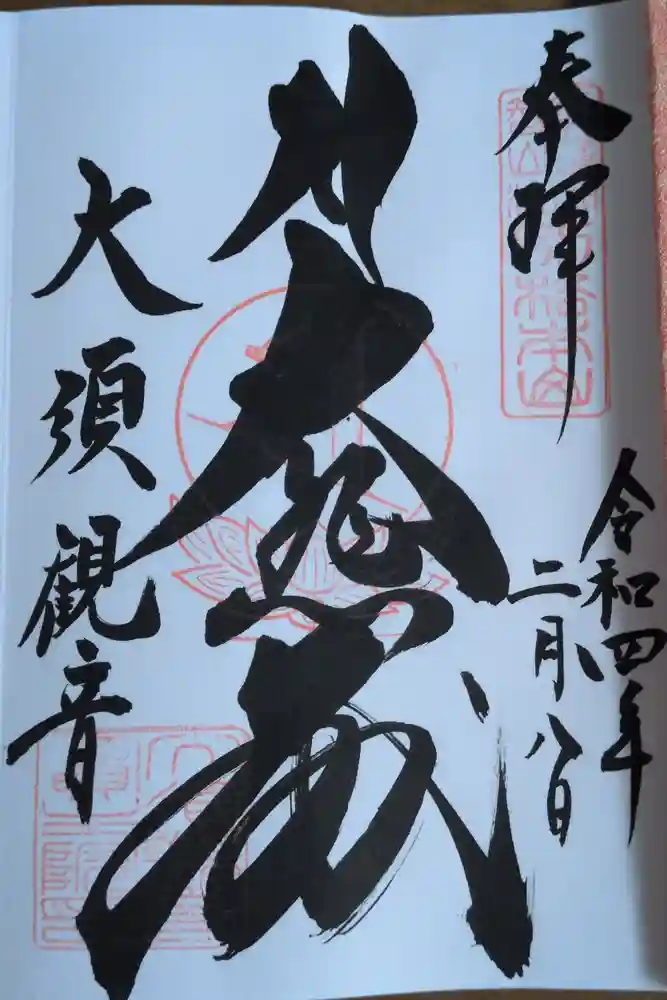 奉拝
令和四年
二月八日
大悲殿
大須観音